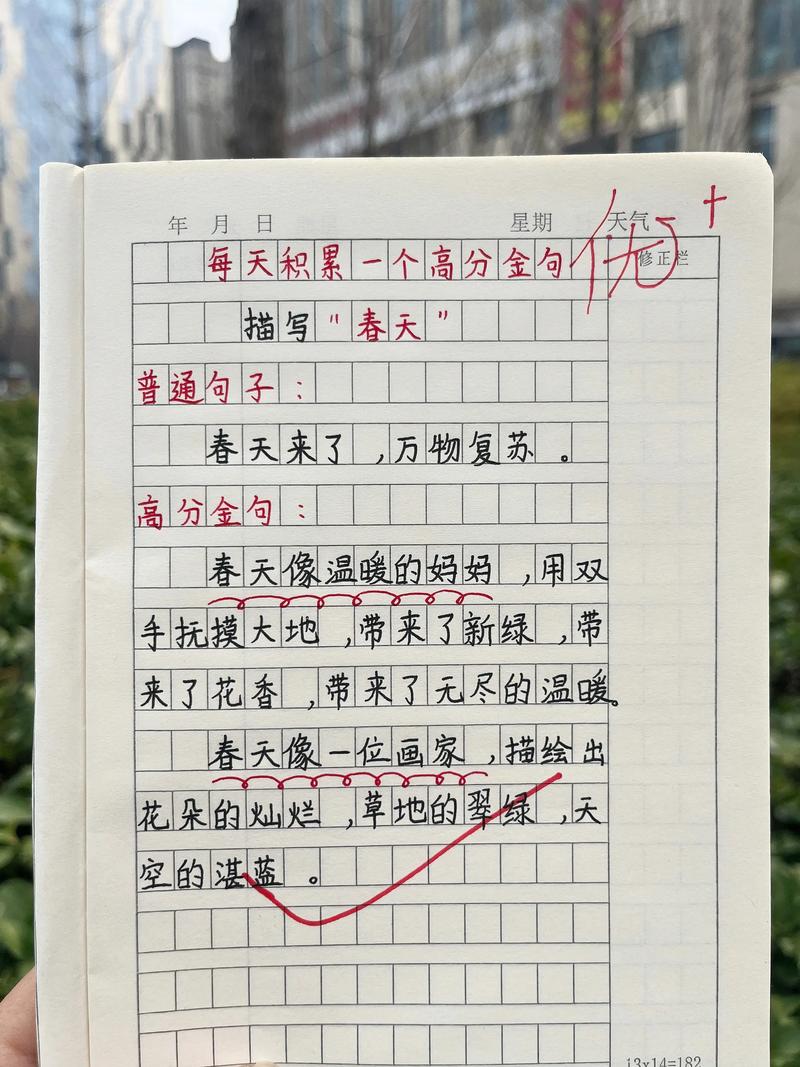 年 月 日 星期 天气
优+
每天积累一个高分金句
修正栏
描写“春天”
普通句子：
春天来了，万物复苏。
高分金句：
春天像温暖的妈妈，用双
手抚摸大地，带来了新绿，带
来了花香，带来了无尽的温暖。
春天像一位画家，描绘出
花朵的灿烂，草地的翠绿，天
空的湛蓝。
13x14=182